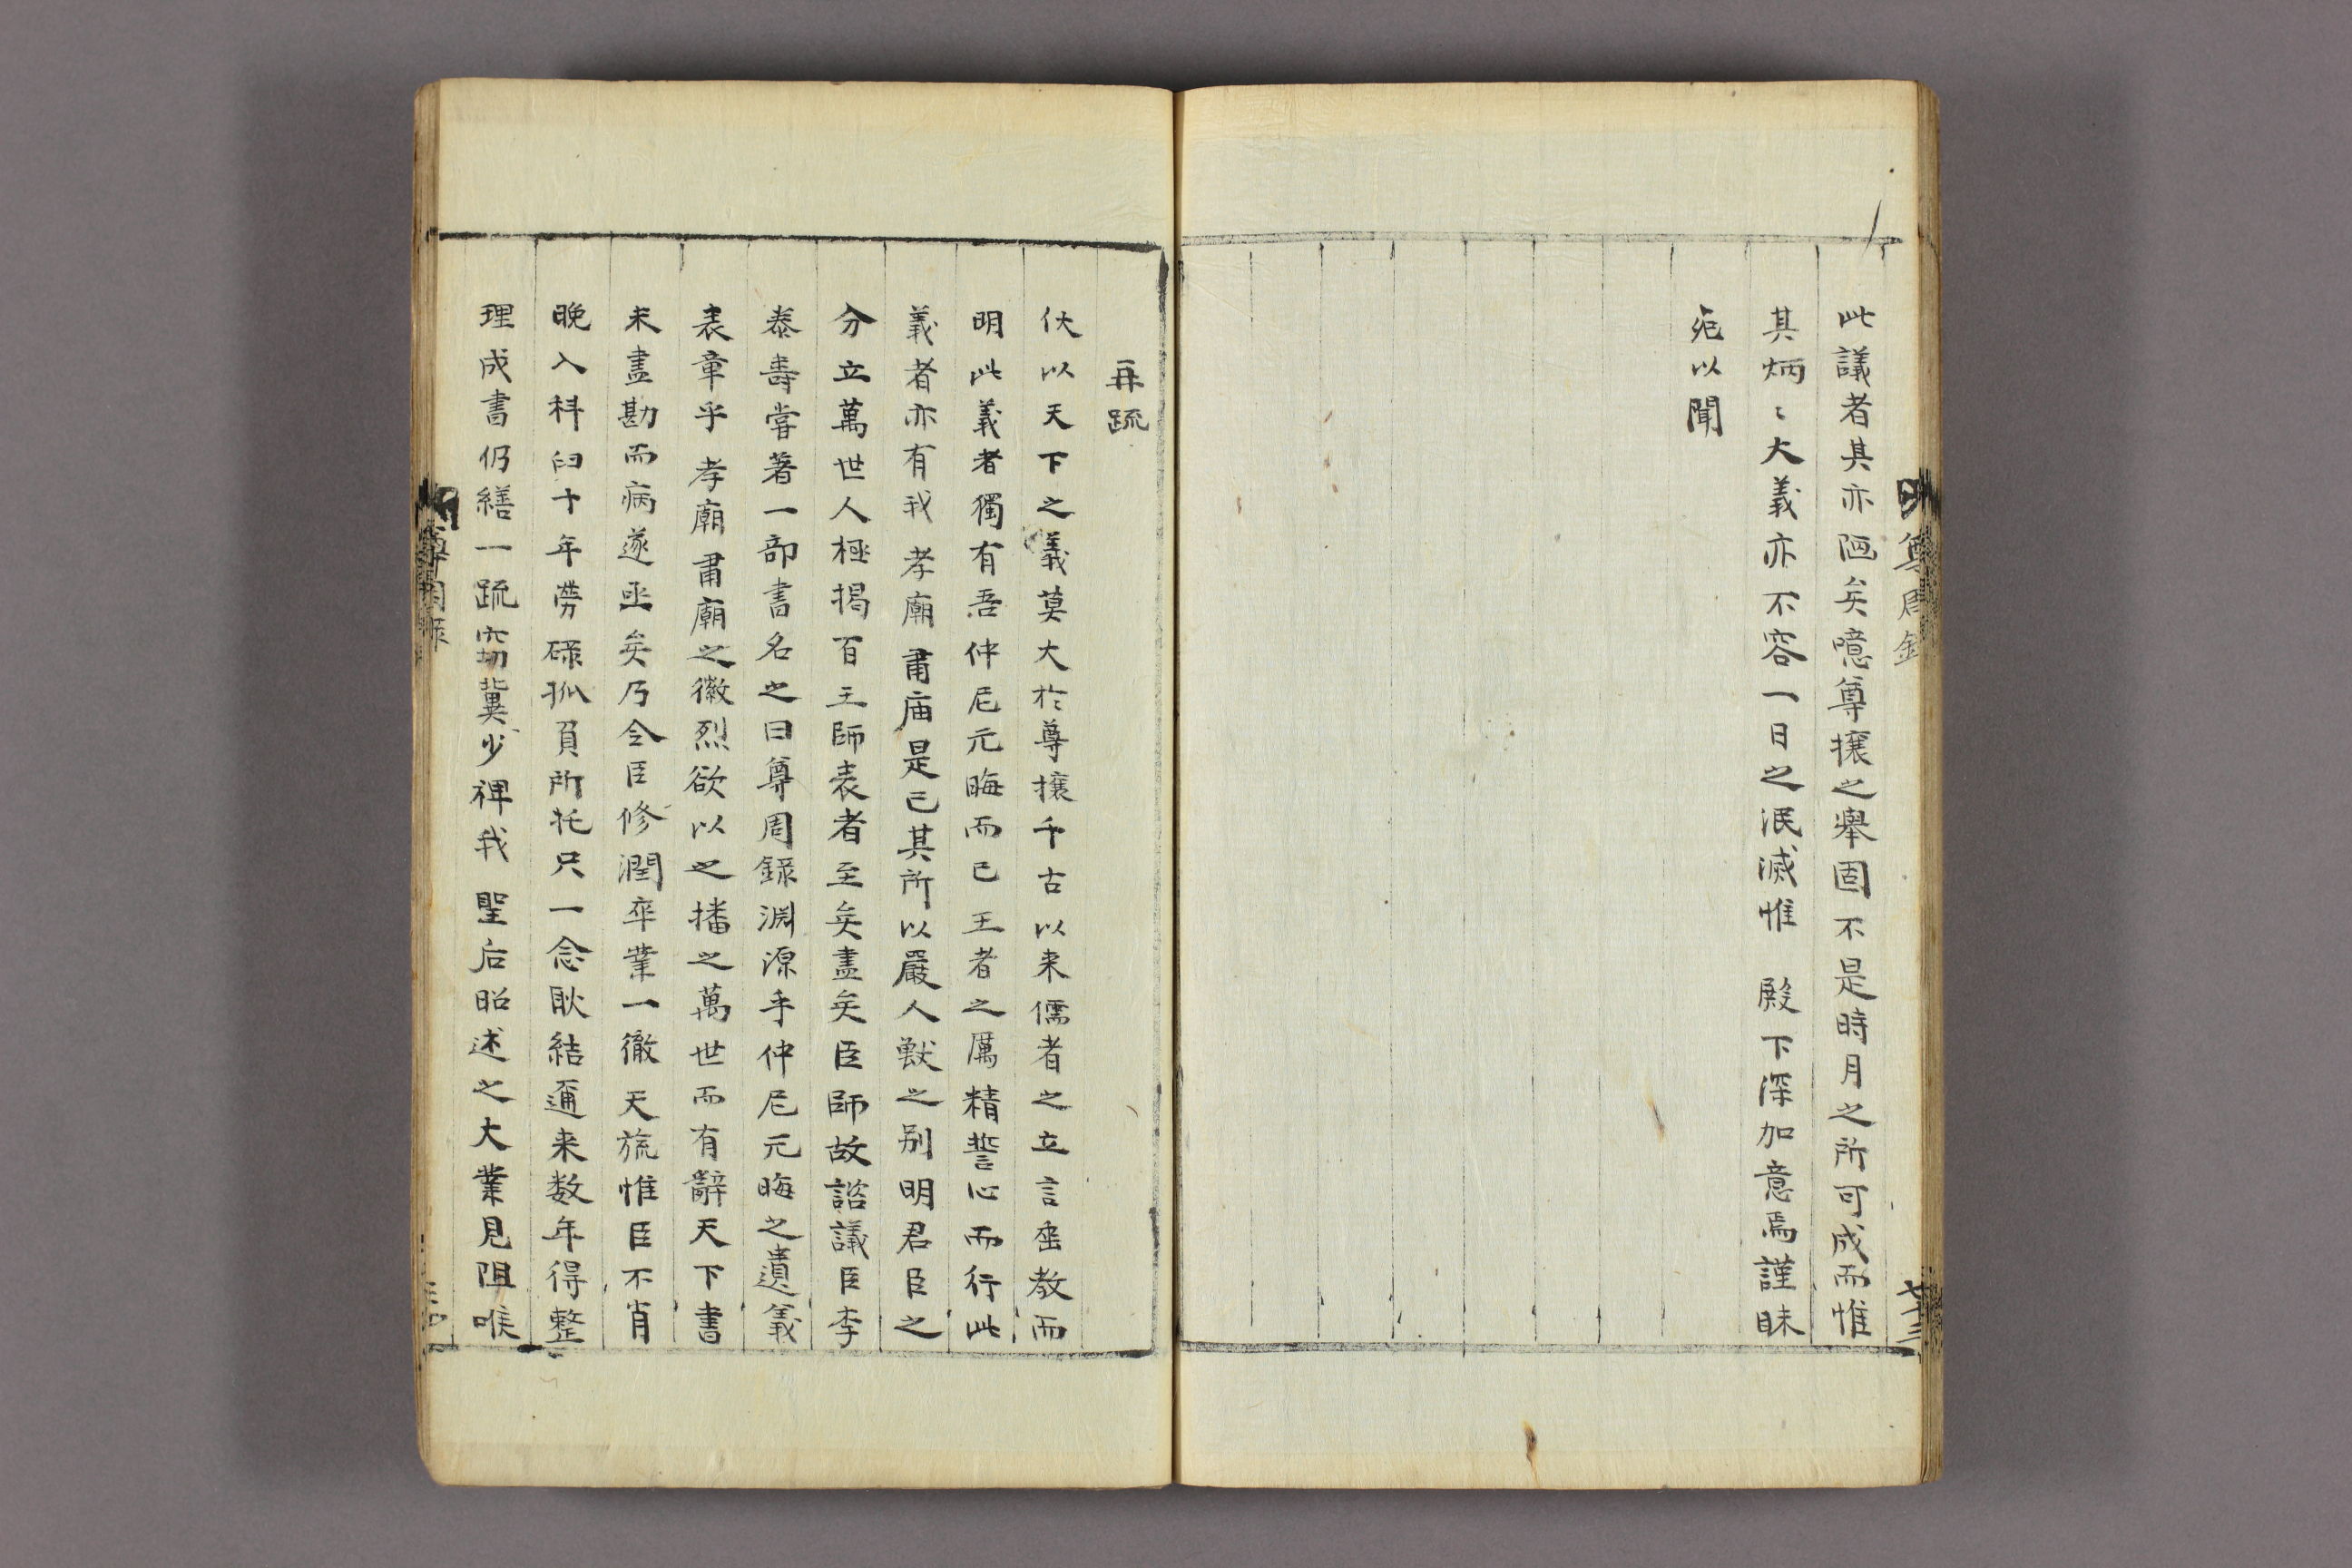 尊周錄
此議者其亦陋矣噫尊攘之舉固不是時月之所可成而惟
其炳〻大義亦不容一日之泯滅惟 殿下深加意焉謹昧
死以聞
七十三
再疏
伏以天下之義莫大於尊攘千古以来儒者之立言垂教而
明此義者獨有吾仲尼元晦而已王者之厲精誓心而行此
義者亦有我 孝廟 肅庙是已其所以嚴人獸之别明君臣之
分立萬世人極揭百王師表者至矣盡矣臣師故諮議臣李
泰壽嘗著一部書名之曰尊周錄淵源乎仲尼元晦之遺義
表章乎 孝廟 肅廟之徽烈欲以之播之萬世而有辭天下書
未盡勘而病遂亟矣乃令臣修潤卒業一徹天旒惟臣不肖
晚入科臼十年勞碌孤負所托只一念耿結邇来数年得整
理成書仍繕一疏窃冀少裨我 聖后昭述之大業見阻喉
尊周錄